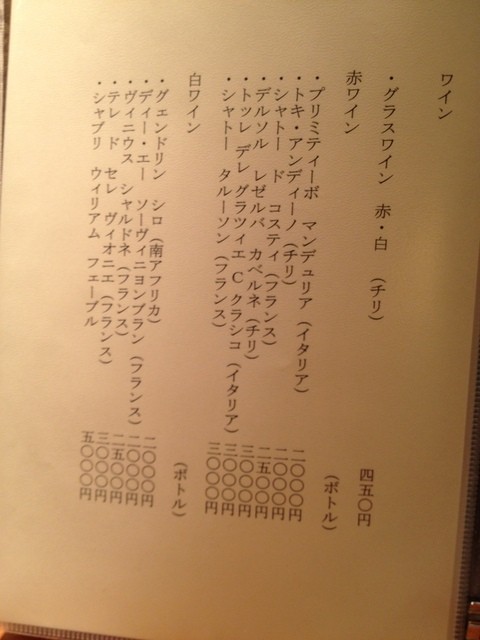 ワイン
・グラスワイン 赤・白 (チリ) 四五〇円
赤ワイン (ボトル)
・プリミティーボ マンデュリア (イタリア) 二〇〇〇円
・トキ・アンディーノ (チリ) 二〇〇〇円
・シャトー ド コスティ (フランス) 二五〇〇円
・デルソル レゼルバ カベルネ (チリ) 三〇〇〇円
・トッレ デレ グラツィエ C クラシコ (イタリア) 三〇〇〇円
・シャトー タルーソン (フランス) 三〇〇〇円
白ワイン (ボトル)
・グェンドリン シロ (南アフリカ) 二〇〇〇円
・ディー・エー ソーヴィニヨンブラン (フランス) 二〇〇〇円
・ヴィニウス シャルドネ (フランス) 二五〇〇円
・テレ ド セレ ヴィオニエ (フランス) 三〇〇〇円
・シャブリ ウィリアム フェーブル 五〇〇〇円